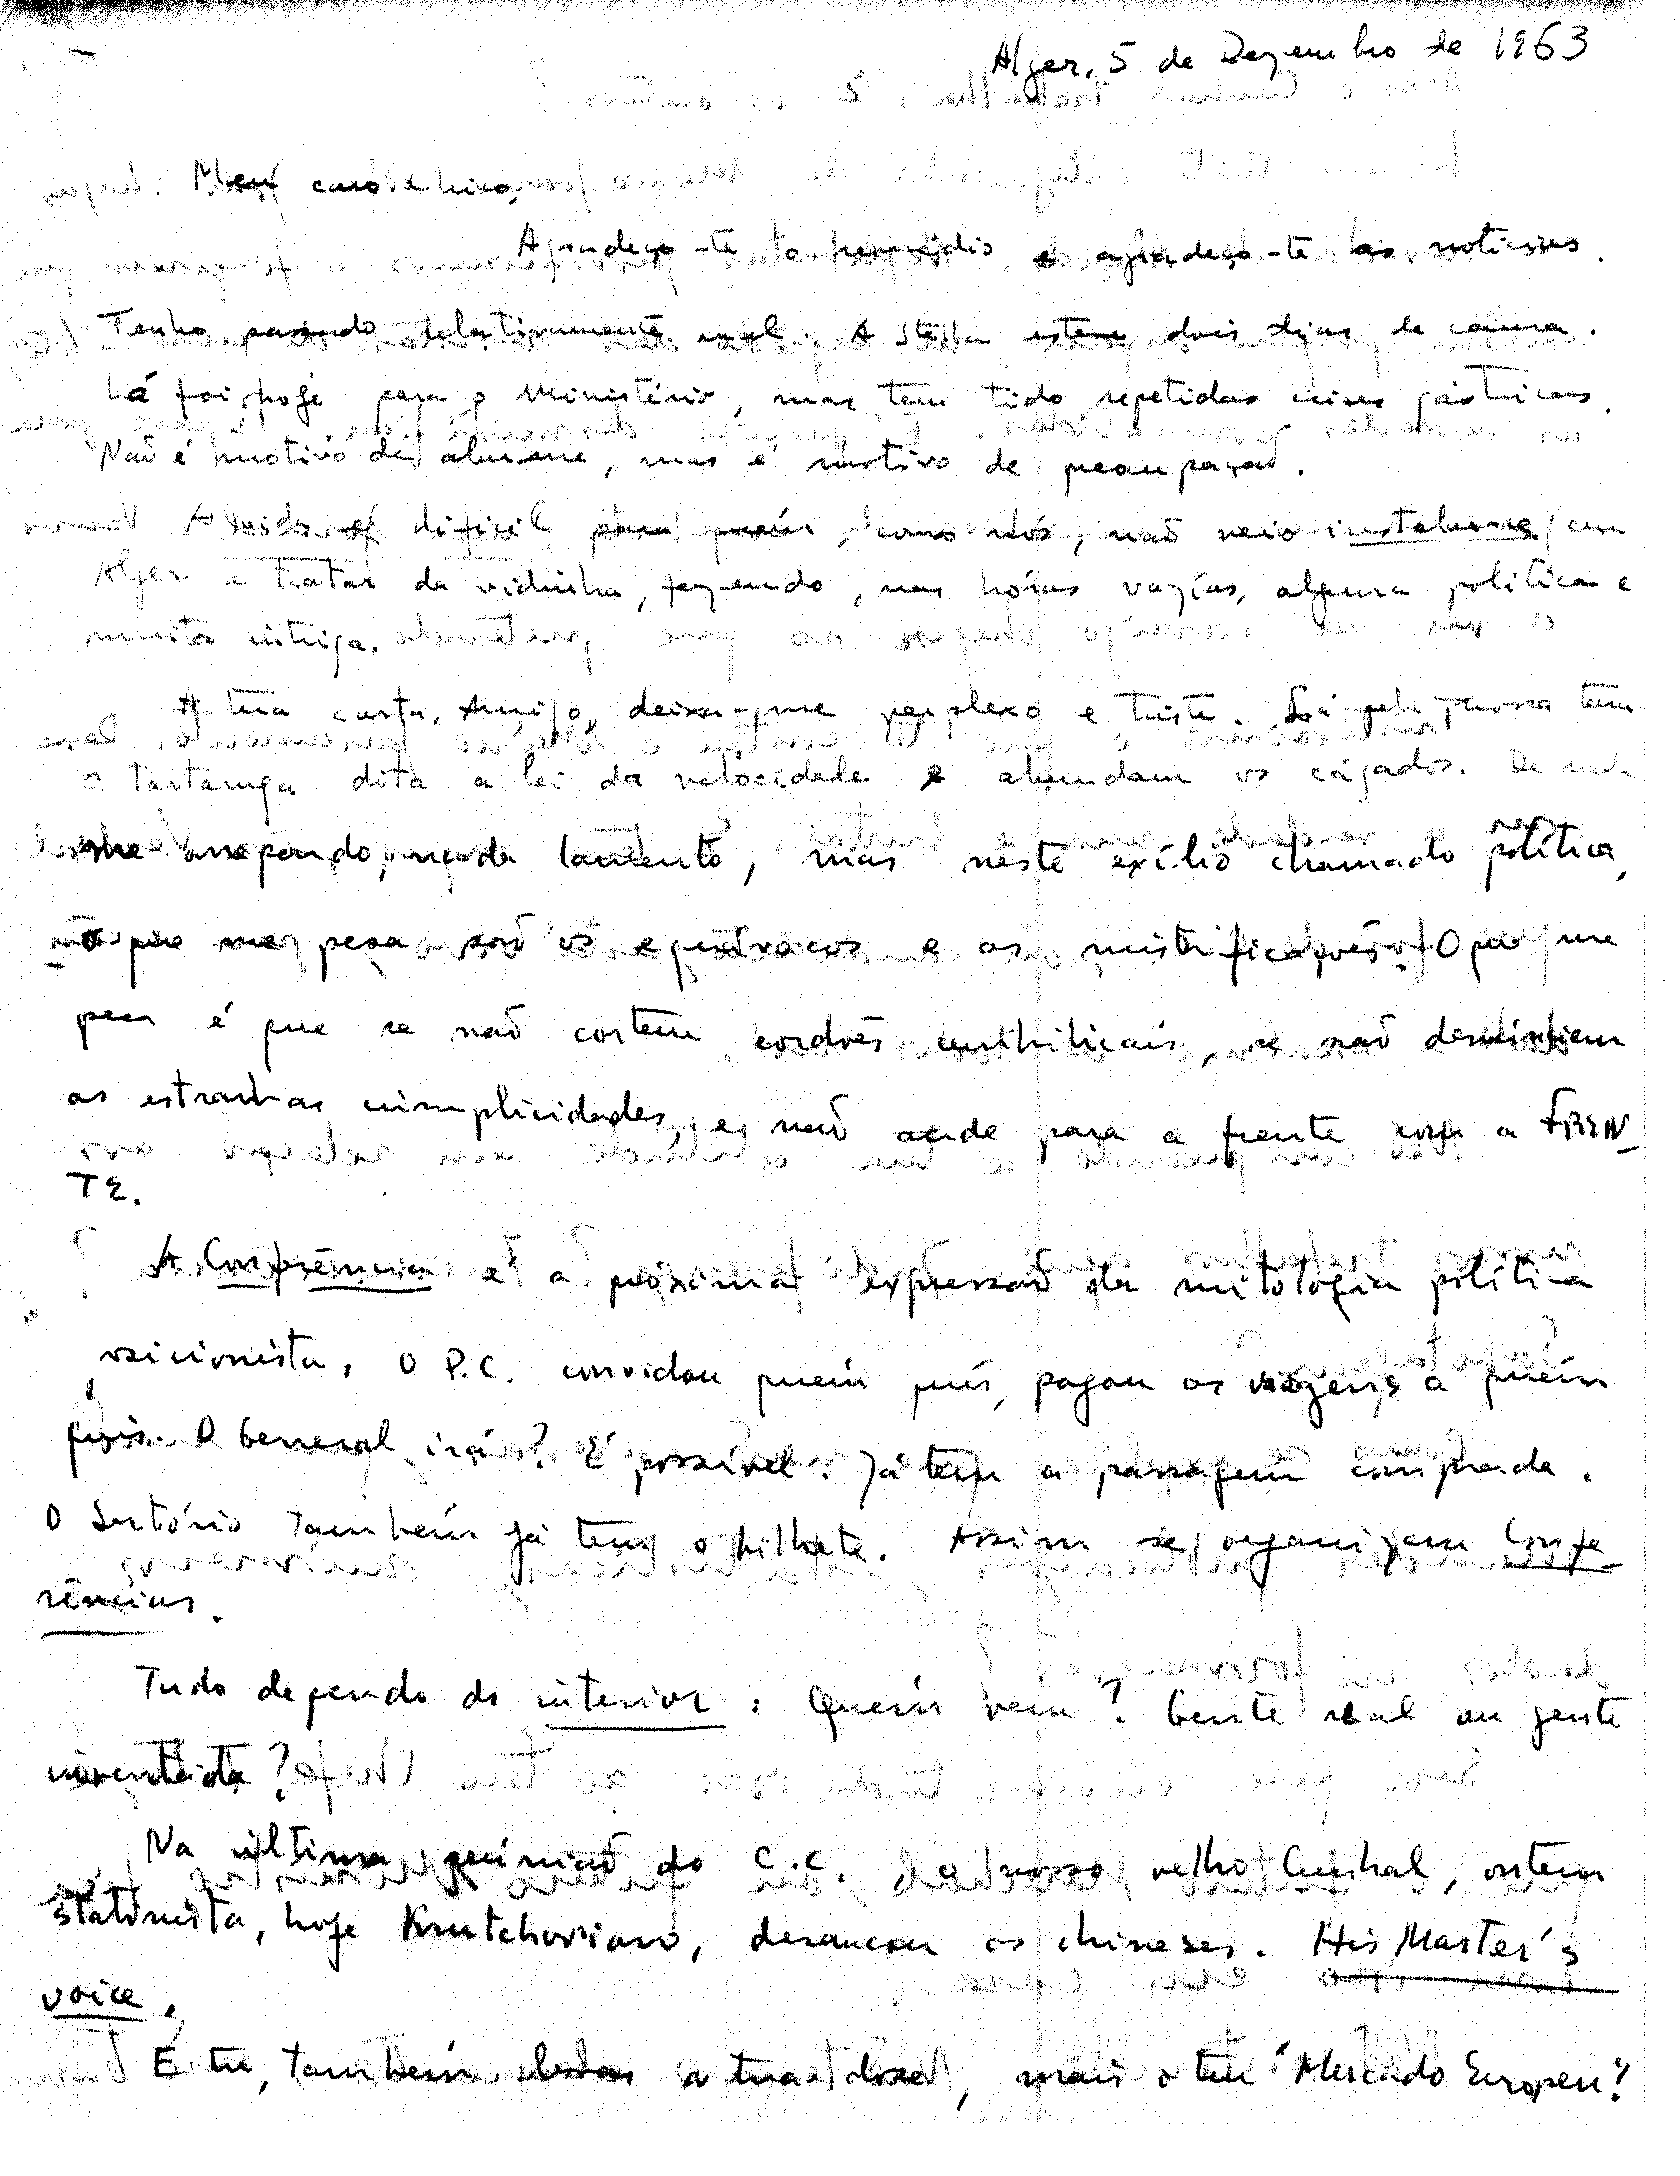 Alger, 5 de Dezembro de 1963
Meu caro
Agradeço-te o remédio e agradeço-te as notícias.
Tenho passado relativamente mal. A Stella esteve dois dias de cama.
Lá foi, hoje para o Ministério, mas tem tido repetidas crises gástricas.
Não é motivo de alarme, mas é motivo de preocupação.
A vida é difícil para quem, como nós, não veio instalar-se em
Alger e tratar da vidinha, fazendo, nas horas vazias, alguma política e
muita intriga.
A tua carta, Amigo, deixa-me perplexo e triste. Lá pela tem
a Tartaruga dita a lei da velocidade e abundam os cágados. De
me arrependo, nada lamento, mas neste exílio chamado política,
o que me pesa são os equívocos e as mistificações. O que me
pesa é que se não cortem cordões umbilicais, se não
as estranhas cumplicidades, e não ande para a frente com a FREN
TE.
A Conferência é a próxima expressão da mitologia política
osicionista. O P.C. convidou quem quis, pagou as viagens a quem
quis. O General irá? É possível. Já tem a passagem comprada.
O Sertório também já tem o bilhete. Assim se organizam Confe
rências.
Tudo depende do interior: Quem vem? Gente real ou gente
inventada?
Na última reunião do C.C. o nosso velho Cunhal, ontem
stalinista, hoje Krutchoviano, desancou os chineses. His Master's
voice.
E tu, também a tua dose, mais o teu Mercado Europeu?